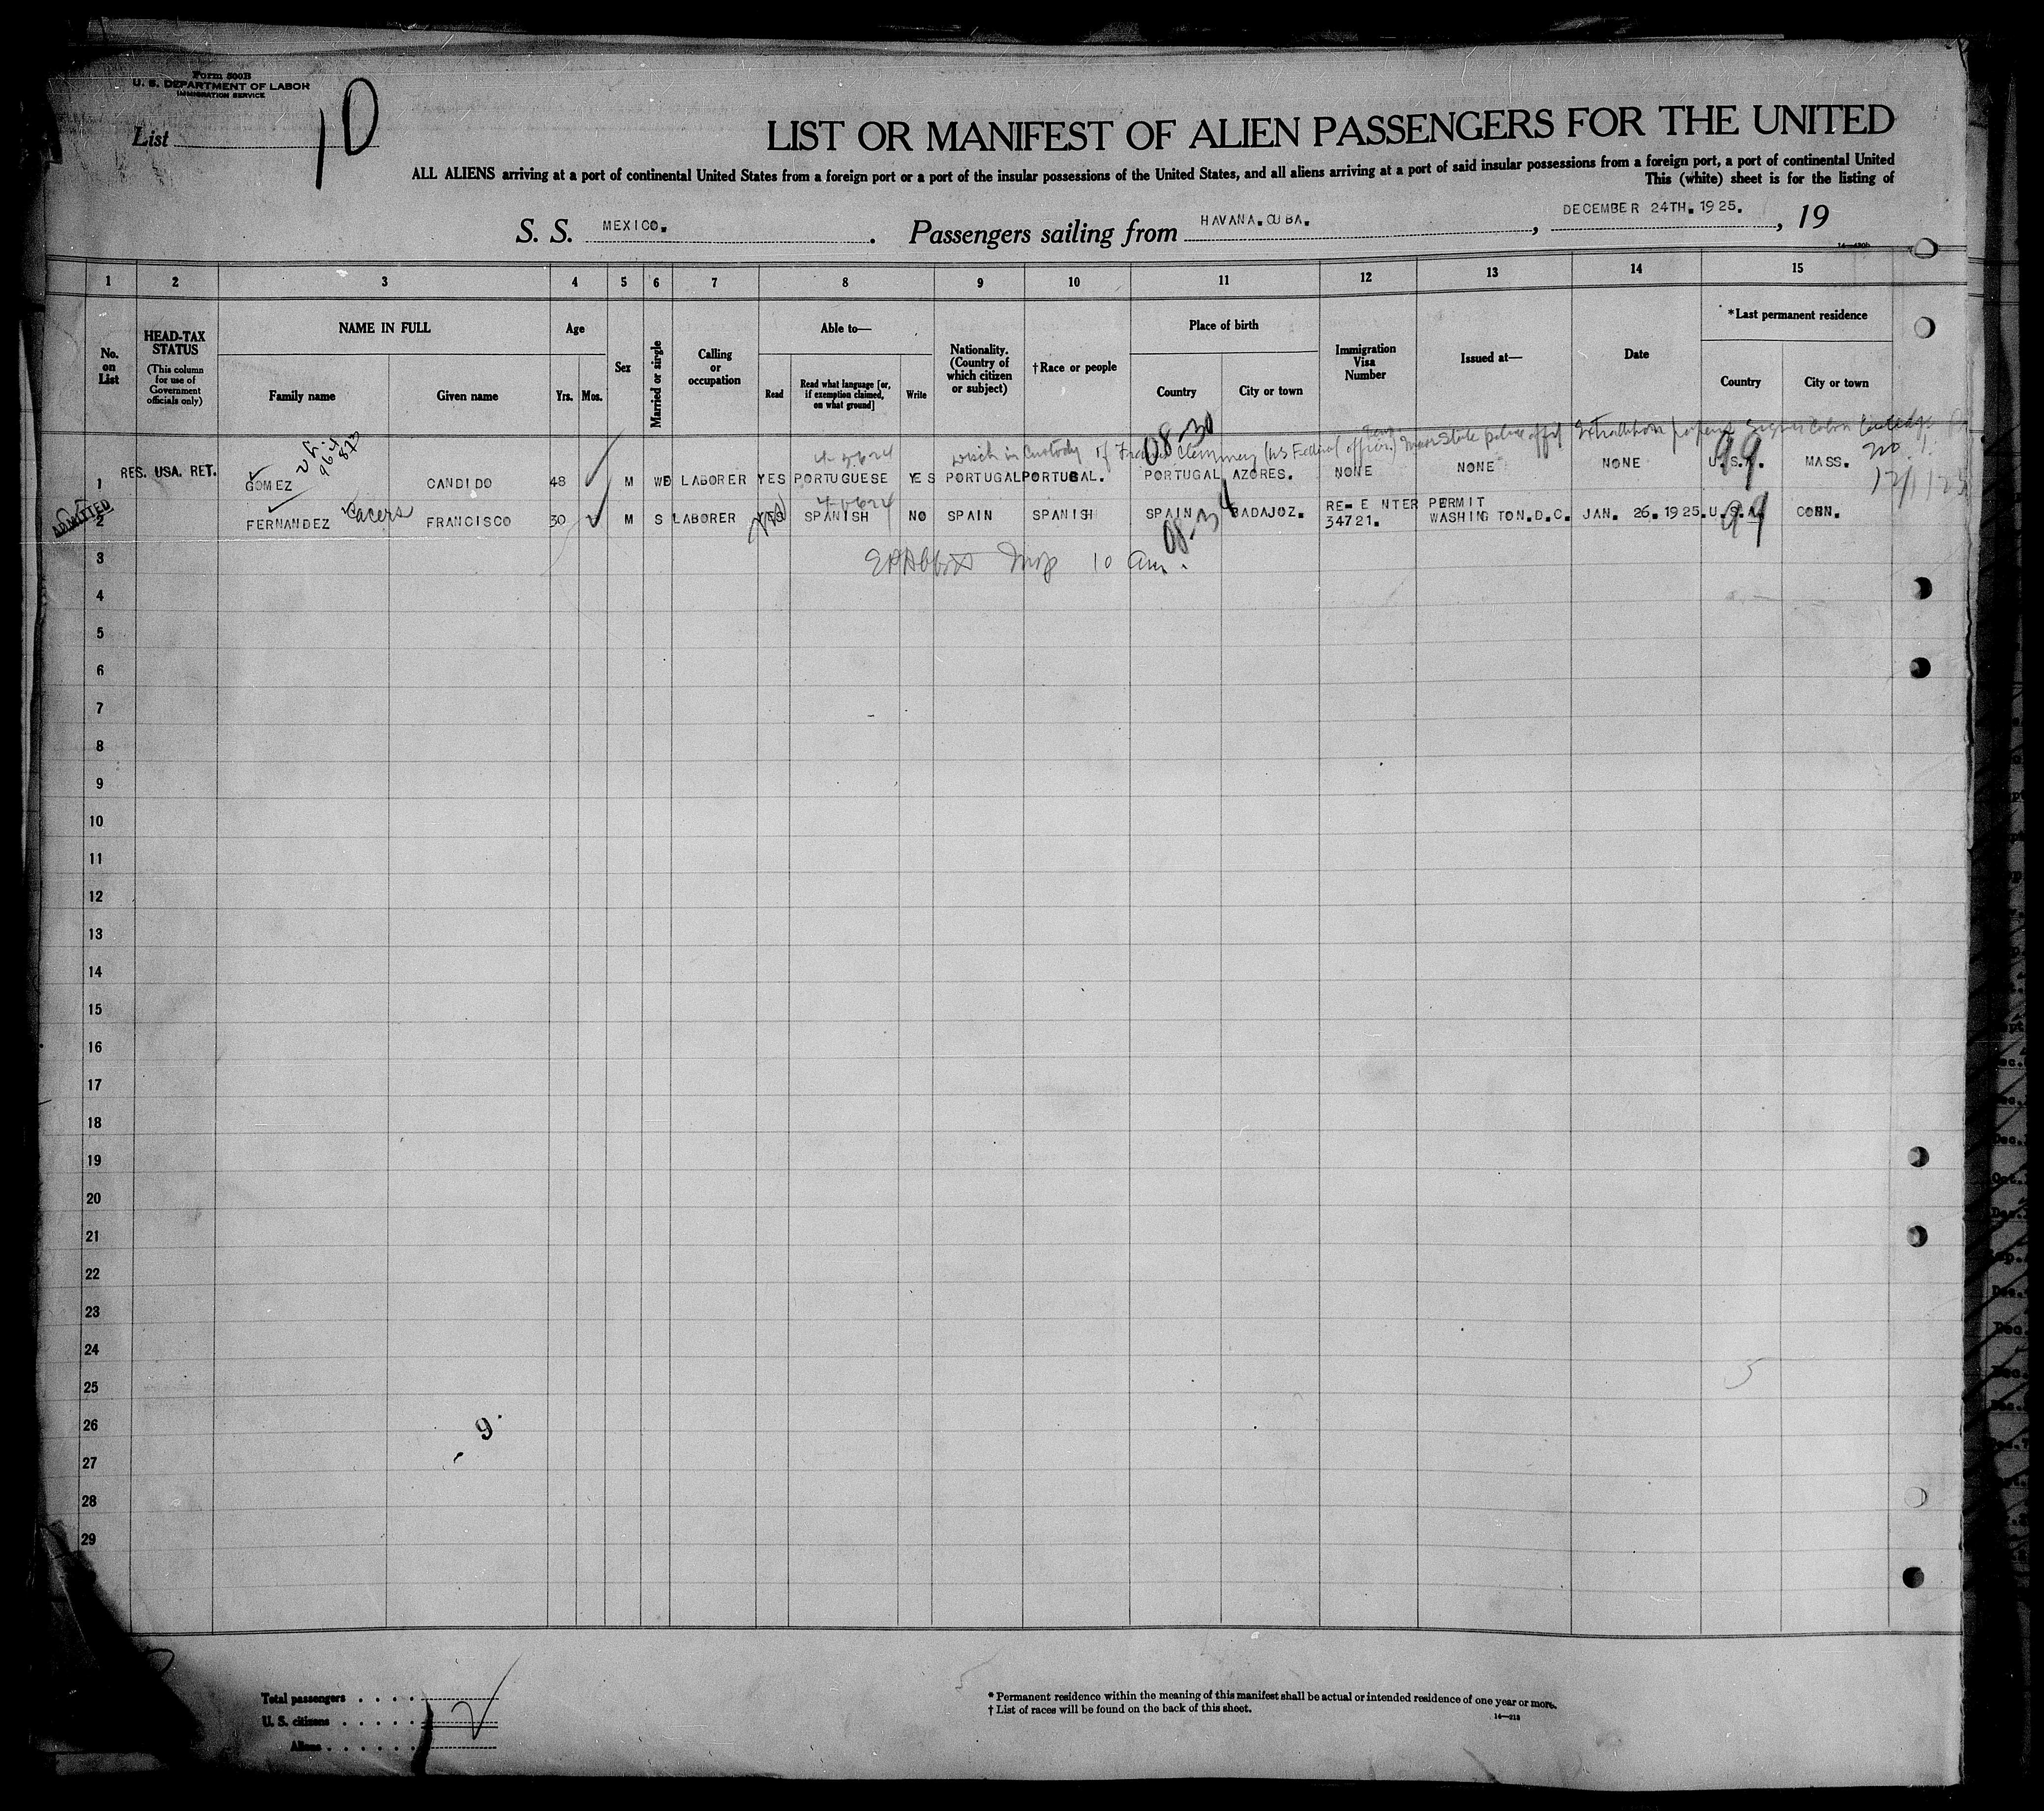 Form 500B
U. S. DEPARTMENT OF LABOR
IMMIGRATION SERVICE
List 10
LIST OR MANIFEST OF ALIEN PASSENGERS FOR THE UNITED
ALL ALIENS arriving at a port of continental United States from a foreign port or a port of the insular possessions of the United States, and all aliens arriving at a port of said insular possessions from a foreign port, a port of continental United
This (white) sheet is for the listing of
S. S. MEXICO. . Passengers sailing from HAVANA.CUBA. , DECEMBER 24TH. 1925. , 19
14—430b
1 2 3 4 5 6 7 8 9 10 11 12 13 14 15
No. on List
HEAD-TAX STATUS
(This column for use of Government officials only)
NAME IN FULL
Family name
Given name
Age
Yrs. Mos.
Sex
Married or single
Calling or occupation
Able to—
Read
Read what language [or, if exemption claimed, on what ground]
Write
Nationality. (Country of which citizen or subject)
†Race or people
Place of birth
Country
City or town
Immigration Visa Number
Issued at—
Date
*Last permanent residence
Country
City or town
964
873
08-30
in custody of
(US Federal officer) Mass State police
Extradition papers
4-5624
99
no 1.
1 RES. USA. RET. GOMEZ CANDIDO 48 M WD LABORER YES PORTUGUESE YES PORTUGAL PORTUGAL. PORTUGAL AZORES. NONE NONE NONE U.S.A. MASS.
ADMITTED
4-5624
08-34
99
2 FERNANDEZ Cacers FRANCISCO 30 M S LABORER YES SPANISH NO SPAIN SPANISH SPAIN BADAJOZ. RE-ENTER PERMIT 34721. WASHINGTON.D.C. JAN. 26.1925. U.S.A. CONN.
3
Insp 10 am.
4
5
6
7
8
9
10
11
12
13
14
15
16
17
18
19
20
21
22
23
24
25
26
9
27
28
29
Total passengers . . . .
U. S. citizens . . . . .
Aliens . . . . . .
2
* Permanent residence within the meaning of this manifest shall be actual or intended residence of one year or more.
† List of races will be found on the back of this sheet.
14—213